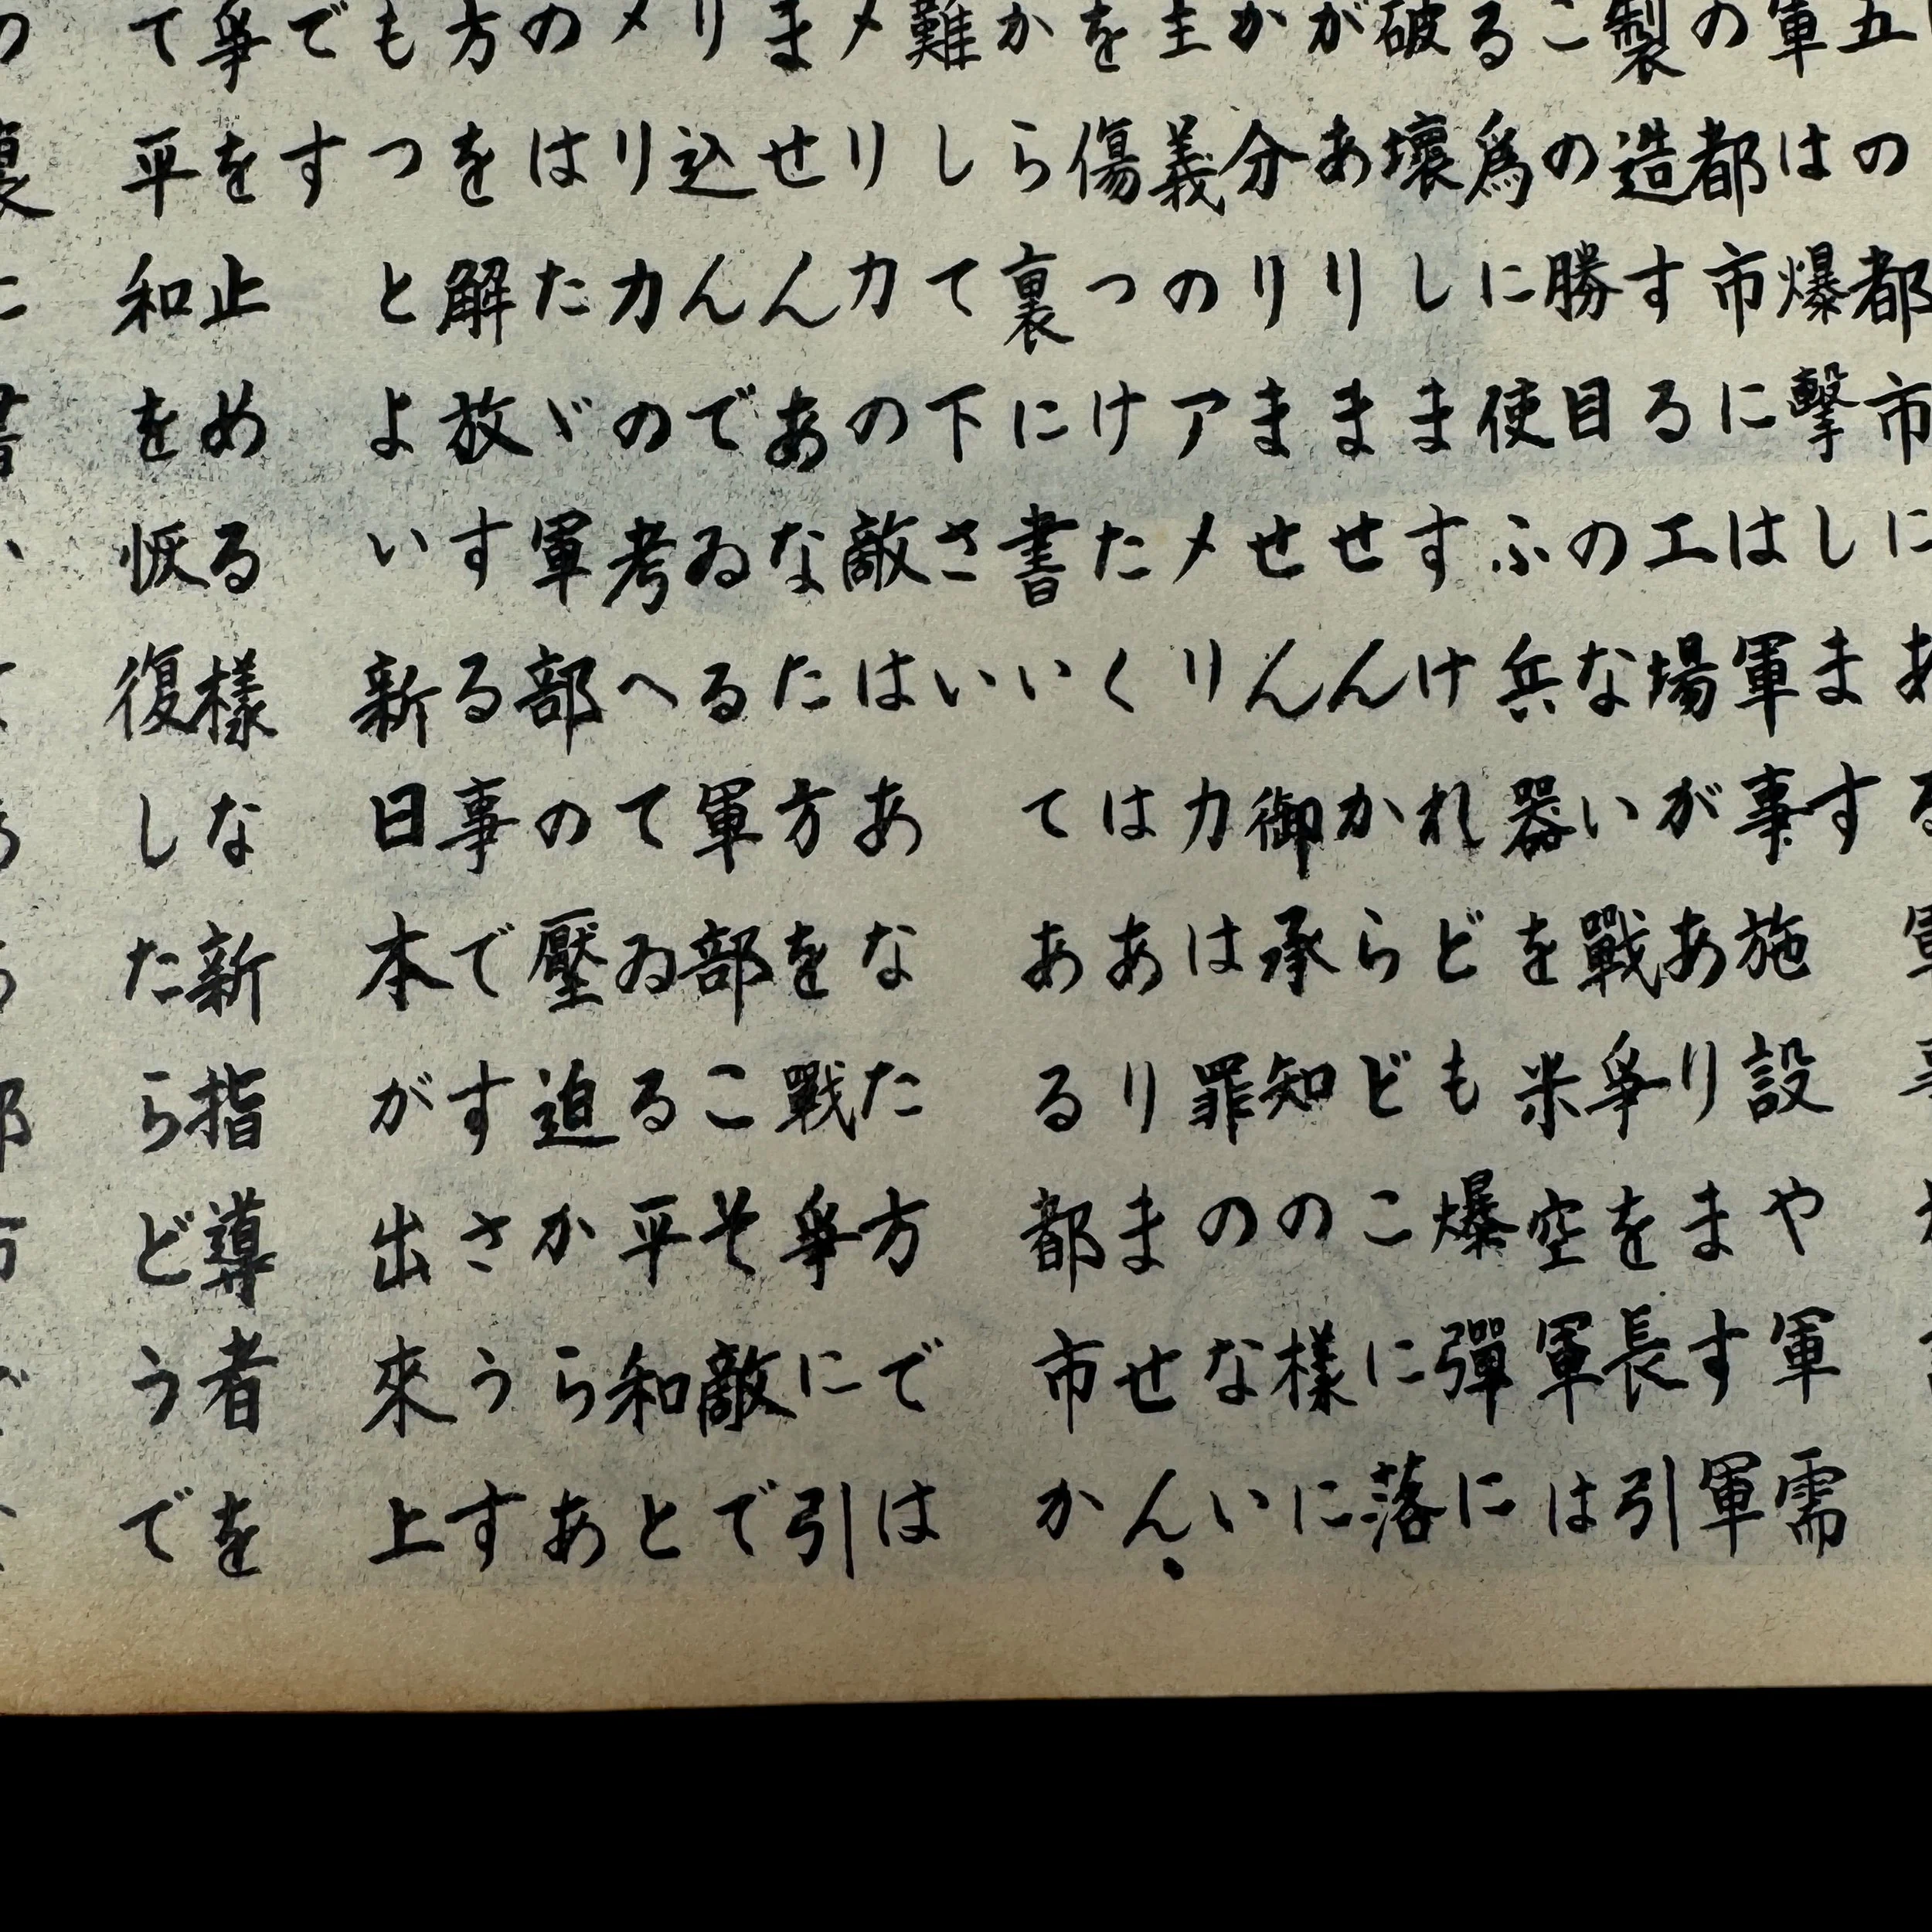 五の都市にある軍事
軍は爆擊します
の都市には軍事施設や軍需
製造する工場があります軍
この勝目のない戰爭を長引
る爲に使ふ兵器を米空軍は
破壞しますけれども爆彈に
がありませんからどこに落
か分りません御承知の樣に
主義のアメリカは罪のない
を傷つけたくはありません。
から裏に書いてある都市か
難して下さい
メリカの敵はあなた方では
ませんあなた方を戰爭に引
り込んでゐる軍部こそ敵で
メリカの考へてゐる平和と
のはたゞ軍部の壓迫からあ
方を解放する事ですさうす
もつとよい新日本が出來上
です
爭を止める樣な新指導者を
て平和を恢復したらどうで